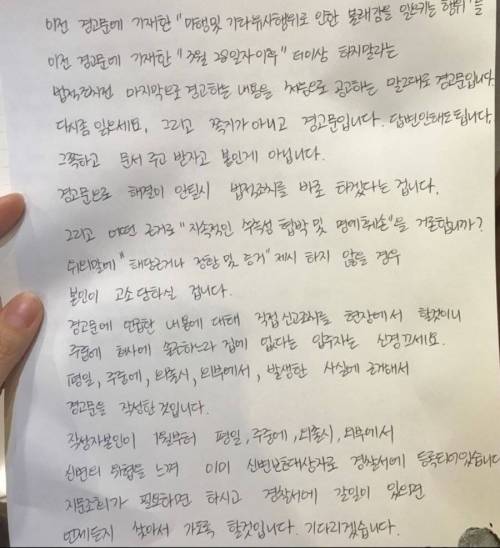 이전 경고문에 기재한 "미행및 기타유사행위로 인한 불쾌감을 일으키는 행위"를
이전 경고문에 기재한 "3월 28일자이후" 더이상 하지말라는
법적조치전 마지막으로 경고하는 내용을 처음으로 공고하는 말그대로 경고문입니다.
다시좀 읽으세요, 그리고 쪽지가 아니고 경고문입니다. 답변안해도됩니다.
그쪽하고 문서 주고 받자고 붙인게 아닙니다.
경고문으로 해결이 안될시 법적조치를 바로 하겠다는 겁니다.
그리고 어떤 근거로 "지속적인 수속성 협박 및 명예훼손"을 거론합니까?
쉬의말에 "해당근거나 정황 및 증거" 제시 하지 않을 경우
본인이 고소 당하실 겁니다.
경고문에 언급한 내용에 대해 직접 신고조치를 현장에서 할것이니
주중에 회사에 출근하느라 집에 없다는 입주자는 신경끄세요.
평일, 주중에, 외출시, 외부에서, 발생한 사실에 근거해서
경고문을 작성한것입니다.
작성자본인이 1월부터 평일, 주중에, 외출시, 외부에서
신변의 위협을 느껴 이미 신변보호대상자로 경찰서에 등록되어있습니다
지문조회가 필요하면 하시고 경찰서에 갈일이 있으면
언제든지 찾아서 가도록 할것입니다. 기다리겠습니다.